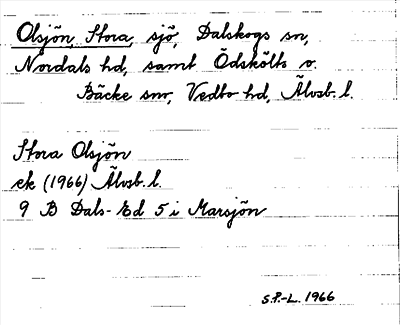 Olsjön, Stora, sjö, Dalskogs sn,
Nordals hd, samt Ödskölts o.
Bäcke snr, Vedbo hd, Älvsb. l.
Stora Olsjön
ek (1966) Älvsb. l.
9 B Dals-Ed 5 i Marsjön
S.P.-L. 1966